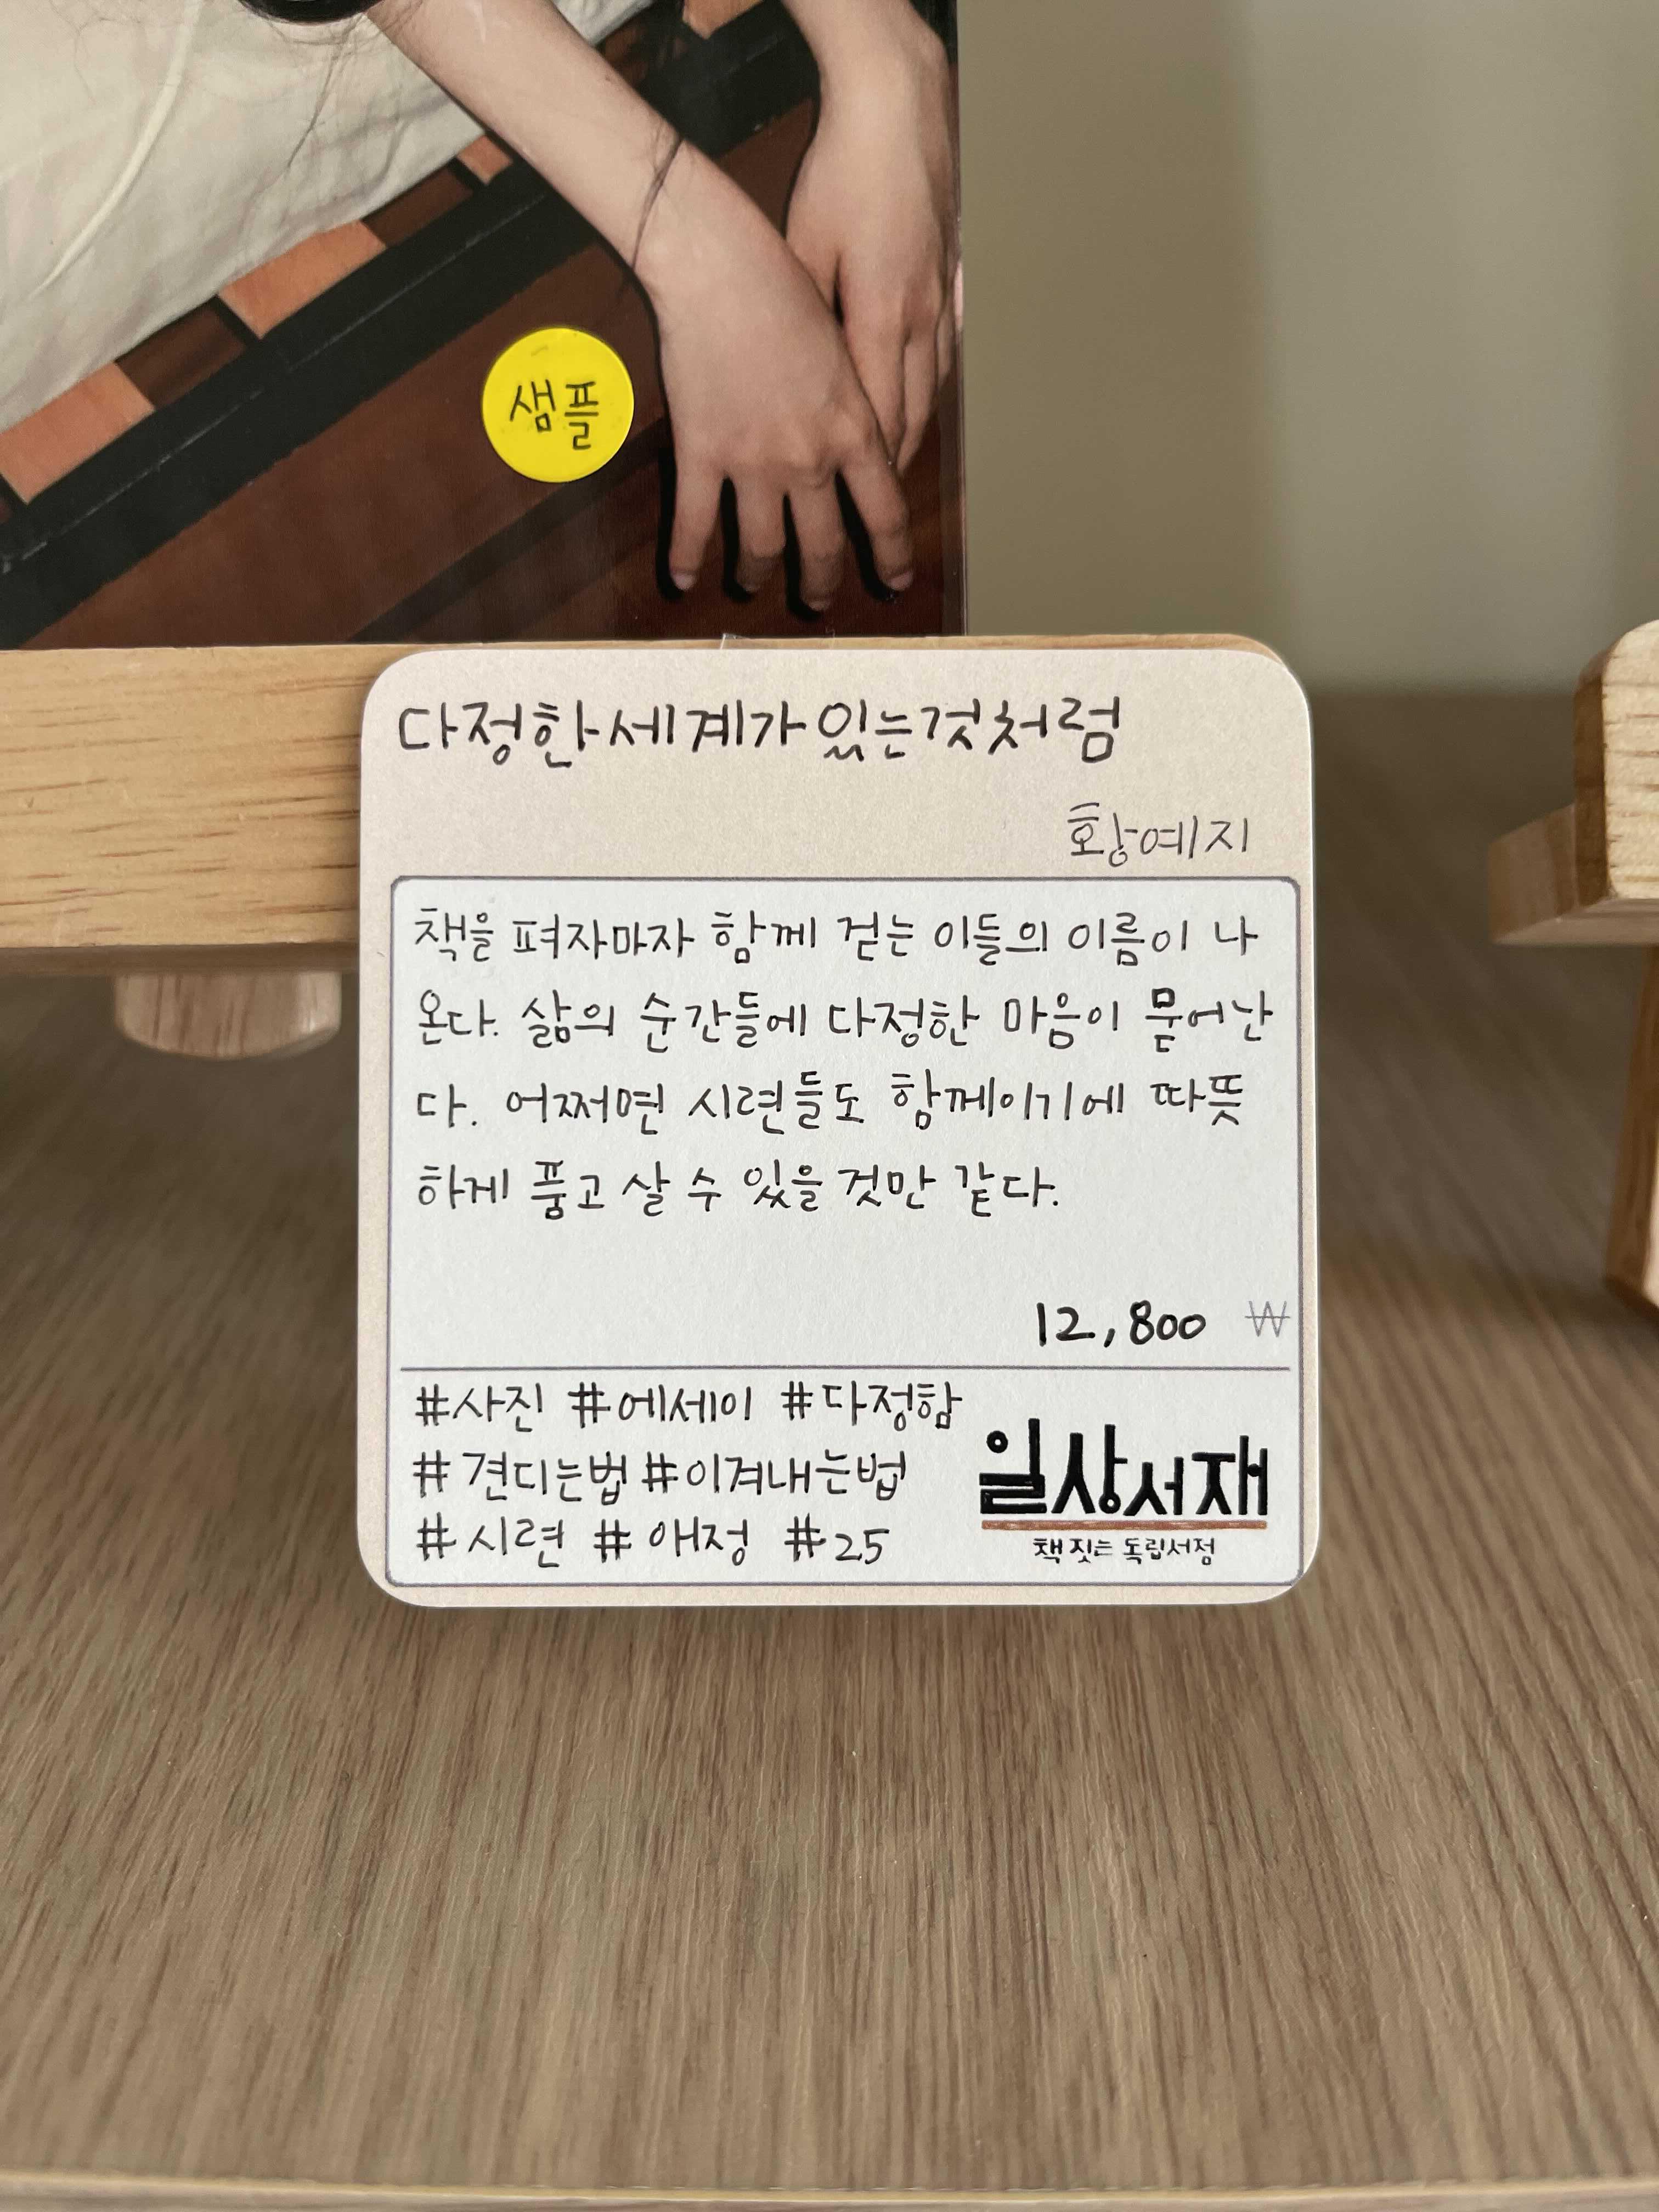 샘플
다정한세계가있는것처럼
황예지
책을 펴자마자 함께 걷는 이들의 이름이 나
온다. 삶의 순간들에 다정한 마음이 묻어난
다. 어쩌면 시련들도 함께이기에 따뜻
하게 품고 살 수 있을 것만 같다.
12,800 ₩
#사진 #에세이 #다정함
#견디는법 #이겨내는법
#시련 #애정 #25
일상서재
책 짓는 독립서점